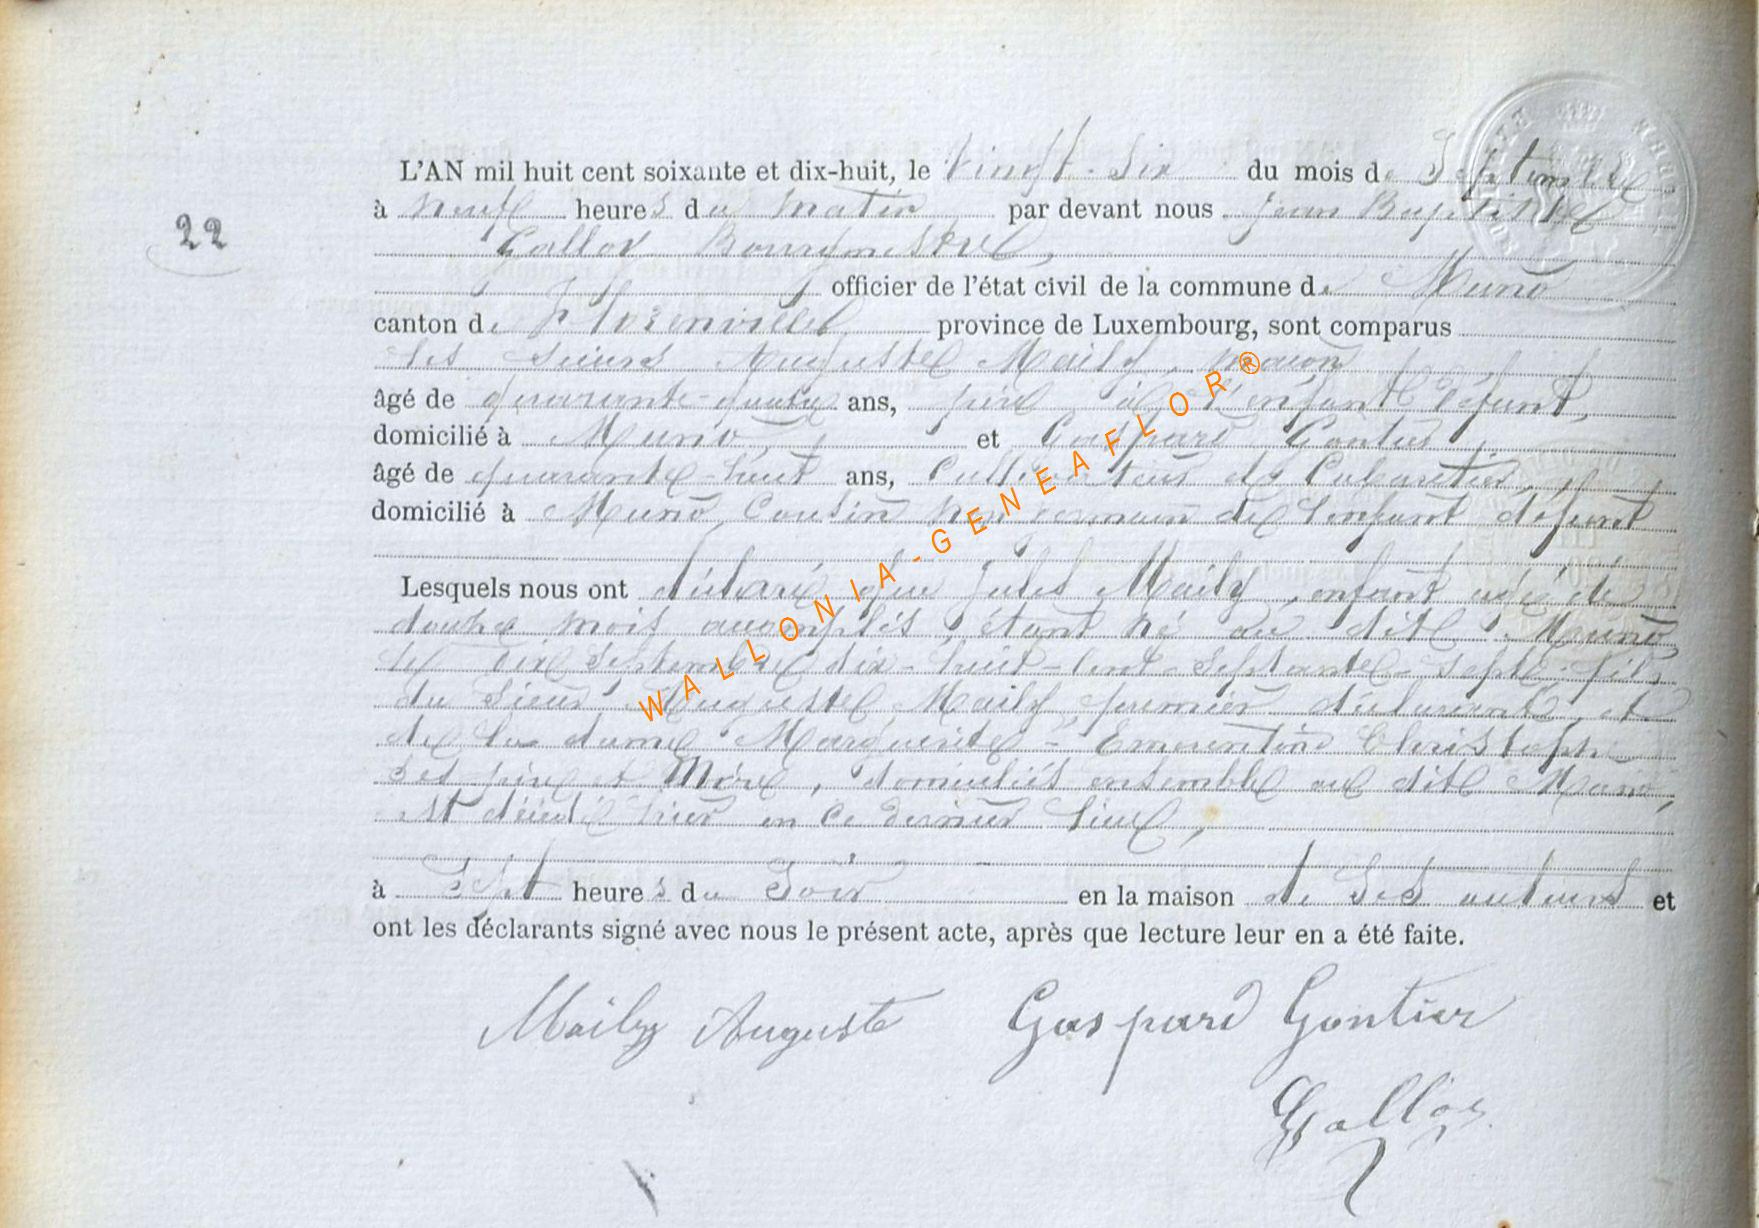 L'AN mil huit cent soixante et dix-huit, le Vingt-Six du mois de Septembre
22
à neuf heures du matin par devant nous Jean Baptiste
Gallot Bourgmestre,
officier de l'état civil de la commune de Muno
canton de Florenville province de Luxembourg, sont comparus
les sieurs Auguste Maily, maçon
âgé de quarante-quatre ans, père de l'enfant défunt,
domicilié à Muno, et Gaspard Gontier,
âgé de quarante-huit ans, Cultivateur et Cabaretier,
domicilié à Muno, Cousin non germain de l'enfant défunt
Lesquels nous ont déclaré que Jules Maily, enfant âgé de
douze mois accomplis, étant né au dit Muno
le dix Septembre dix-huit-cent-septante-sept, fils
du Sieur Auguste Maily, premier déclarant, et
de la dame Marguerite-Emerentine Christophe
ses père et Mère, domiciliés ensemble au dit Muno,
est décédé hier en ce dernier lieu,
à Sept heures du Soir en la maison de Ses auteurs et
ont les déclarants signé avec nous le présent acte, après que lecture leur en a été faite.
Maily Auguste Gaspard Gontier
Gallot
WALLONIA-GENEAFLOR®